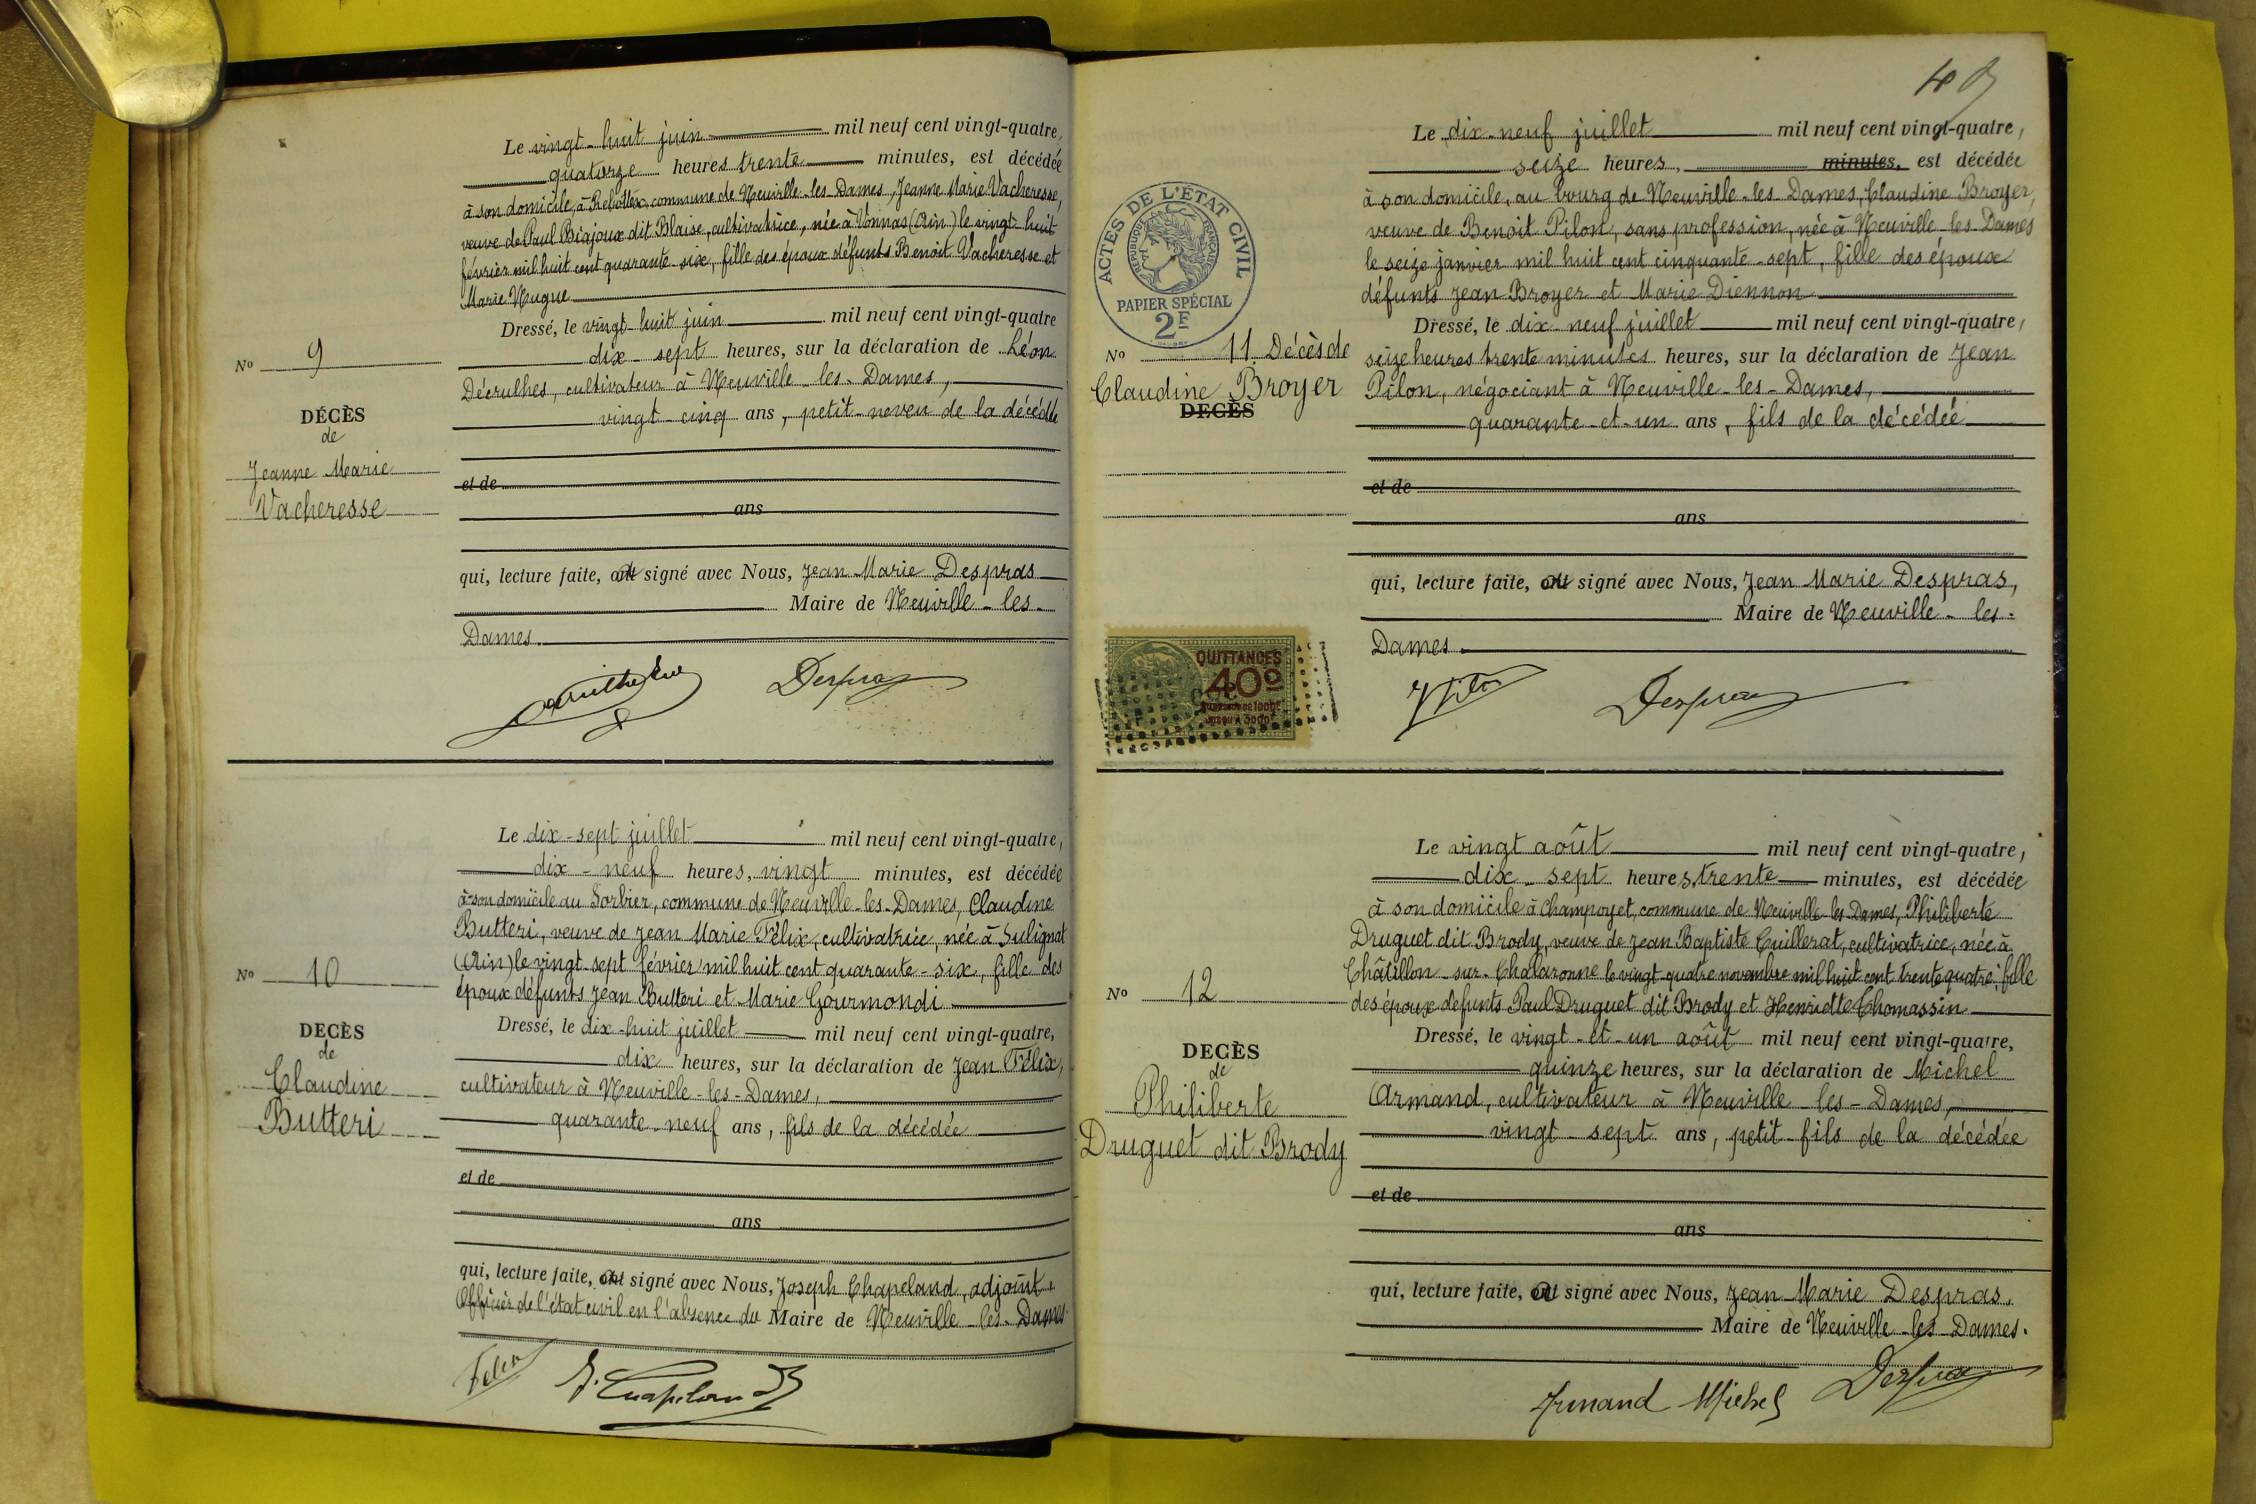 Le vingt-huit juin mil neuf cent vingt-quatre,
quatorze heures trente minutes, est décédée
à son domicile, à commune de Neuville-les-Dames, Jeanne Marie Vacheresse,
veuve de Paul Biajoux dit Blaise, cultivatrice, née à Vonnas (Ain) le vingt-huit
février mil huit cent quarante-six, fille des époux défunts Benoit Vacheresse et
Marie Nugue
Dressé, le vingt-huit juin mil neuf cent vingt-quatre
dix-sept heures, sur la déclaration de Léon
cultivateur à Neuville-les-Dames,
vingt-cinq ans, petit-neveu de la décédée
et de
ans
qui, lecture faite, a signé avec Nous, Jean Marie Despras
Maire de Neuville-les-
Dames.
Despras
No 9
DÉCÈS
de
Jeanne Marie
Vacheresse
Le dix-sept juillet mil neuf cent vingt-quatre,
dix-neuf heures, vingt minutes, est décédée
à son domicile au Sorbier, commune de Neuville-les-Dames, Claudine
Butteri, veuve de Jean Marie Félix, cultivatrice, née à Sulignat
(Ain) le vingt-sept février mil huit cent quarante-six, fille des
époux défunts Jean Butteri et Marie Gourmondi
Dressé, le dix-huit juillet mil neuf cent vingt-quatre,
dix heures, sur la déclaration de Jean Félix,
cultivateur à Neuville-les-Dames,
quarante-neuf ans, fils de la décédée
et de
ans
qui, lecture faite, a signé avec Nous, Joseph Chapeland, adjoint,
Officier de l'état civil en l'absence du Maire de Neuville-les-Dames
Félix J. Chapeland
No 10
DECÈS
de
Claudine
Butteri
48
Le dix-neuf juillet mil neuf cent vingt-quatre,
seize heures, minutes, est décédée
à son domicile, au bourg de Neuville-les-Dames, Claudine Broyer,
veuve de Benoit Pilon, sans profession, née à Neuville-les-Dames
le seize janvier mil huit cent cinquante-sept, fille des époux
défunts Jean Broyer et Marie Diennon
Dressé, le dix-neuf juillet mil neuf cent vingt-quatre,
seize heures trente minutes heures, sur la déclaration de Jean
Pilon, négociant à Neuville-les-Dames,
quarante-et-un ans, fils de la décédée
et de
ans
qui, lecture faite, a signé avec Nous, Jean Marie Despras,
Maire de Neuville-les-
Dames.
J Pilon Despras
ACTES DE L'ÉTAT CIVIL
RÉPUBLIQUE FRANÇAISE
PAPIER SPÉCIAL
2F
No 11 Décès de
Claudine Broyer
DECÈS
QUITTANCES
40c
Le vingt août mil neuf cent vingt-quatre,
dix-sept heures, trente minutes, est décédée
à son domicile à Champoyet, commune de Neuville-les-Dames, Philiberte
Druguet dit Brody, veuve de Jean Baptiste Cuillerat, cultivatrice, née à
Châtillon-sur-Chalaronne le vingt-quatre novembre mil huit cent trente quatre, fille
des époux défunts Paul Druguet dit Brody et Henriette Thomassin
Dressé, le vingt-et-un août mil neuf cent vingt-quatre,
quinze heures, sur la déclaration de Michel
Armand, cultivateur à Neuville-les-Dames,
vingt-sept ans, petit-fils de la décédée
et de
ans
qui, lecture faite, a signé avec Nous, Jean Marie Despras,
Maire de Neuville-les-Dames.
Armand Michel Despras
No 12
DECÈS
de
Philiberte
Druguet dit Brody